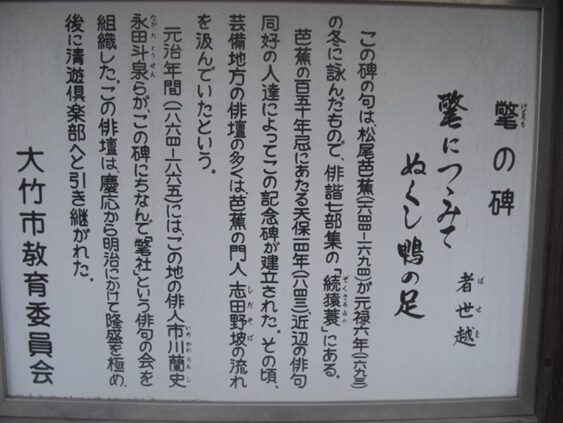 氅の碑
氅につゝみて
ぬくし鴨の足
者世越
この碑の句は、松尾芭蕉(一六四四-一六九四)が元禄六年(一六九三)
の冬に詠んだもので、俳諧七部集の「続猿蓑」にある。
芭蕉の百五十年忌にあたる天保一四年(一八四三)、近辺の俳句
同好の人達によってこの記念碑が建立された。その頃、
芸備地方の俳壇の多くは、芭蕉の門人志田野坡の流れ
を汲んでいたという。
元治年間(一八六四-一八六五)には、この地の俳人市川蘭史
永田斗泉らが、この碑にちなんで"氅社"という俳句の会を
組織した。この俳壇は、慶応から明治にかけて隆盛を極め、
後に清遊倶楽部へと引き継がれた。
大竹市教育委員会